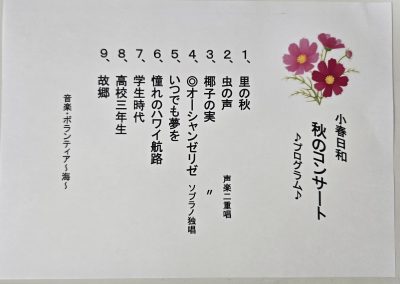 小春日和
秋のコンサート
♪プログラム♪
1、里の秋
2、虫の声 声楽二重唱
3、椰子の実 〃
4、◎オーシャンゼリゼ ソプラノ独唱
5、いつでも夢を
6、憧れのハワイ航路
7、学生時代
8、高校三年生
9、故郷
音楽・ボランティア~海~